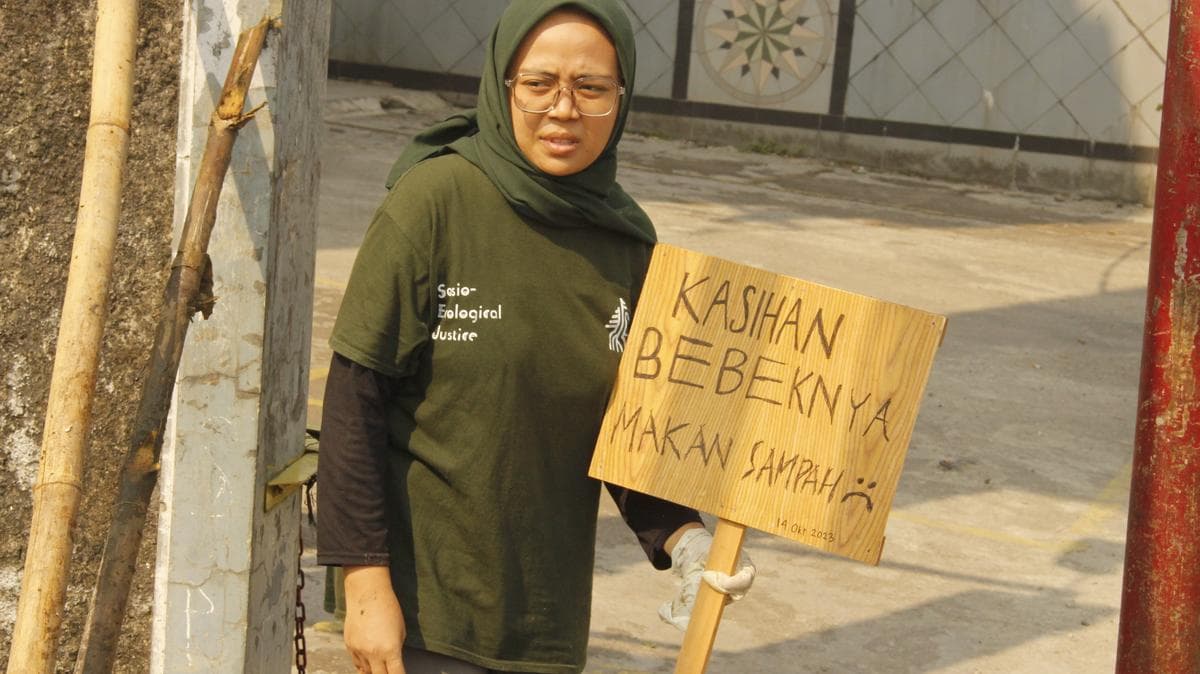 Socio-
Ecological
Justice
KASIHAN
BEBEKNYA
MAKAN SAMPAH
14 Okt 2023